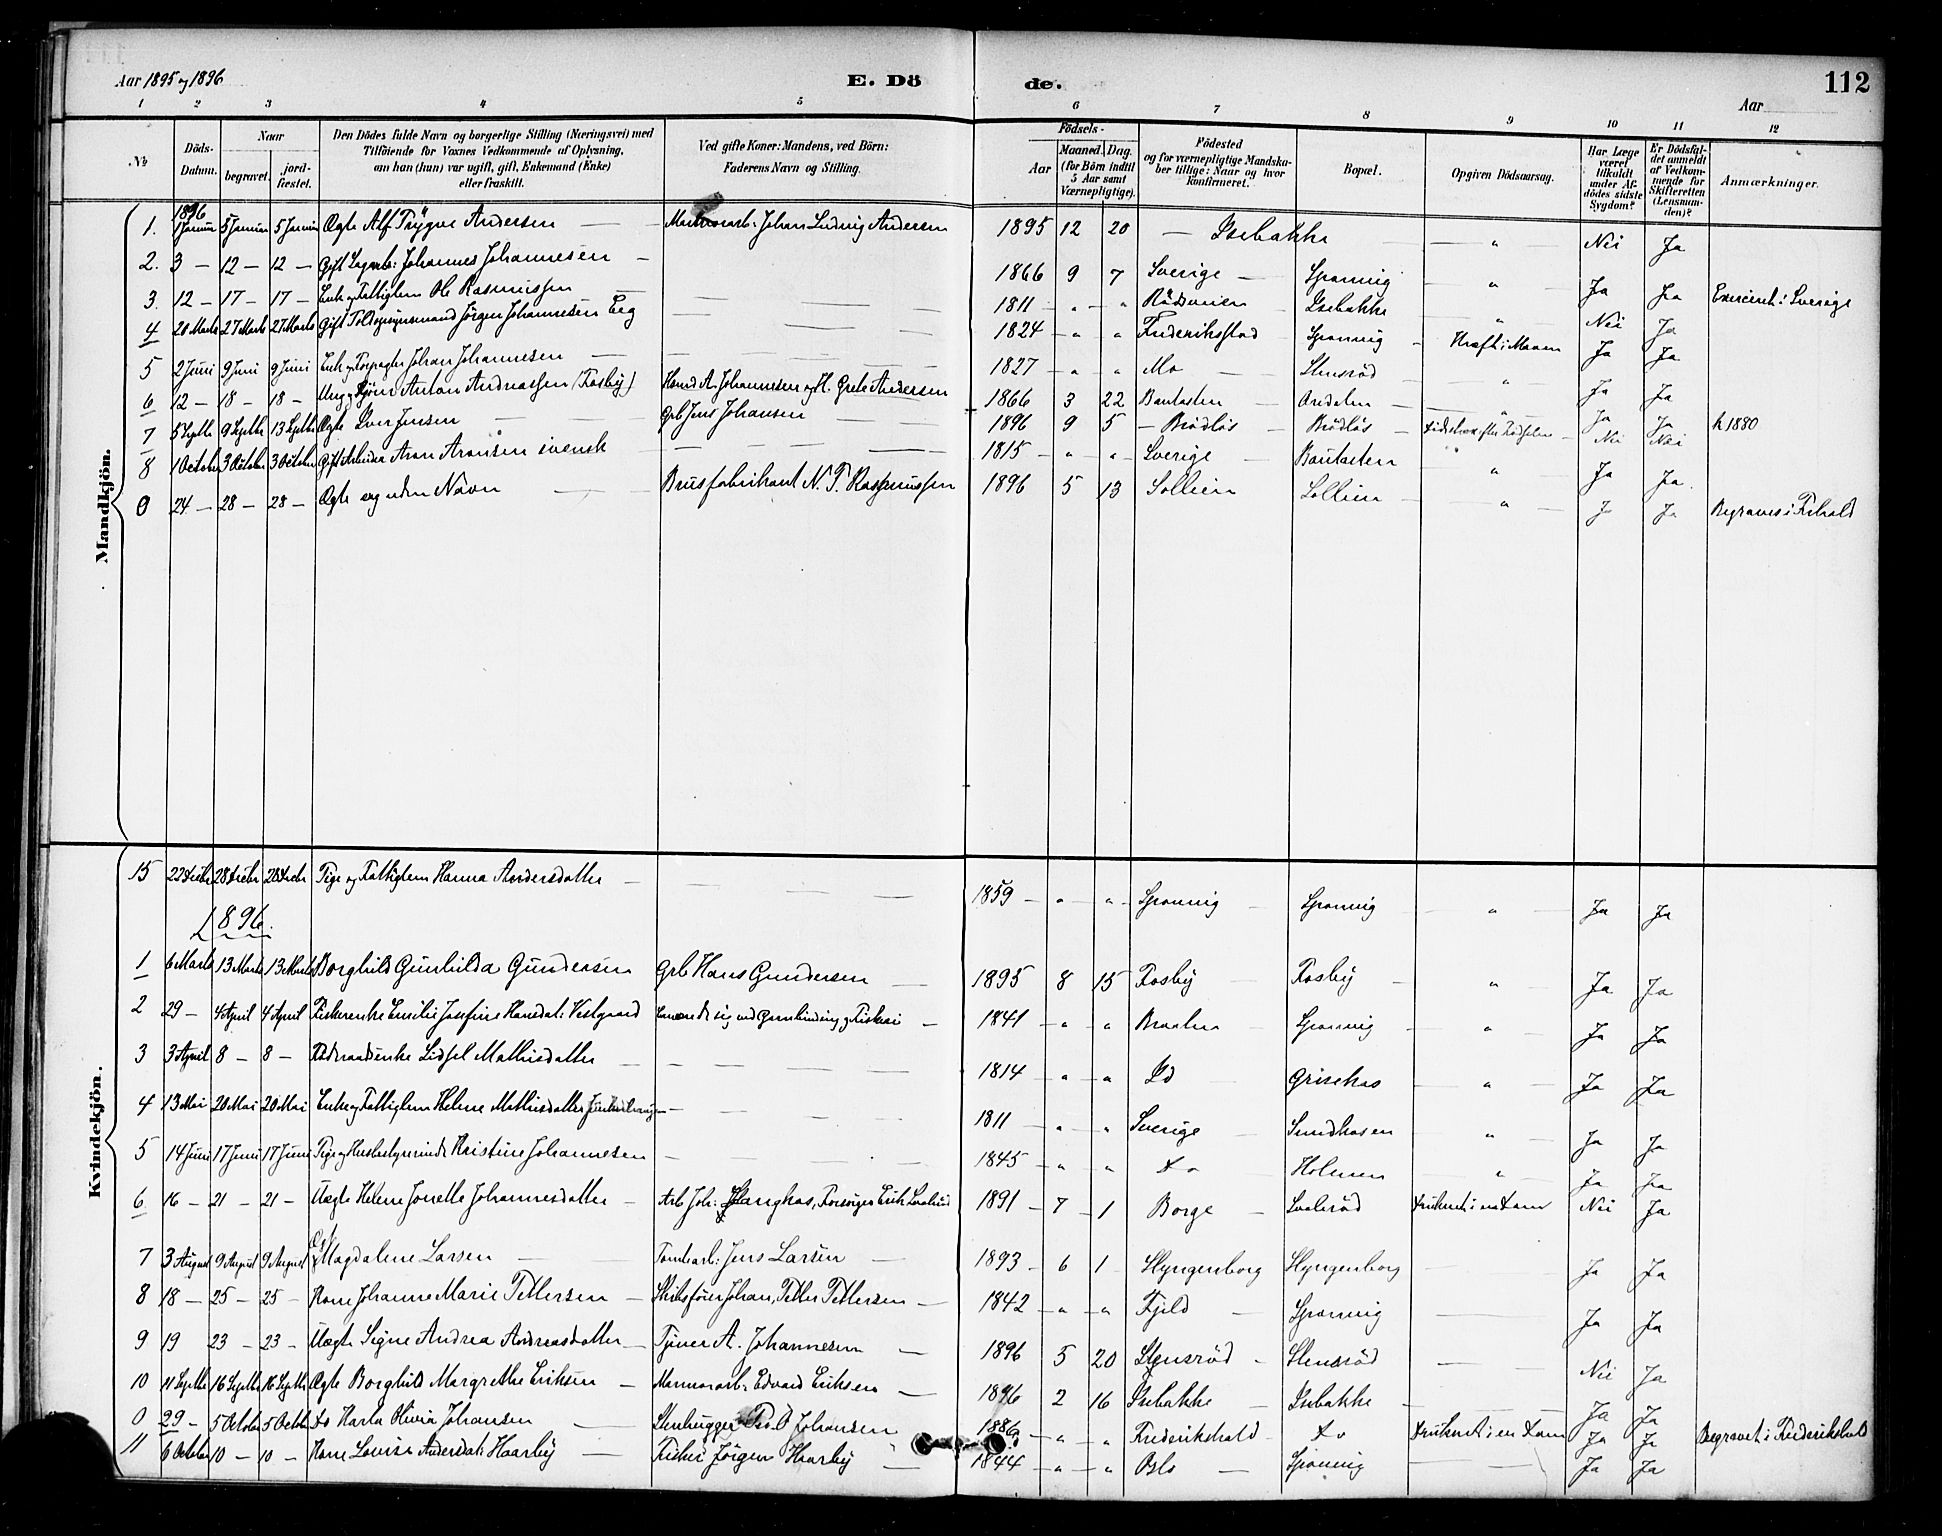 Aar 1895 og 1896 E. Dö de. Aar 112
1 2 3 4 5 6 7 8 9 10 11 12
No.
Döds-Datum.
Naar
begravet.
jordfæstet.
Den Dödes fulde Navn og borgerlige Stilling (Næringsvei) med Tilföiende for Voxnes Vedkommende af Oplysning, om han (hun) var ugift, gift, Enkemand (Enke) eller fraskilt.
Ved gifte Koner: Mandens, ved Börn: Faderens Navn og Stilling.
Födsels-
Aar
Maaned. Dag.
(for Börn indtil 5 Aar samt Værnepligtige).
Födested og for værnepligtige Mandskaber tillige: Naar og hvor Konfirmeret.
Bopæl.
Opgiven Dödsaarsag.
Har Læge været tilkaldt under Afdödes sidste Sygdom?
Er Dödsfaldet anmeldt af Vedkommende for Skifteretten (Lensmanden)?
Anmærkninger.
Mandkjön.
1896
1. 1 Januar 5 Januar 5 Januar Ægte Alf Trygve Andersen — Johan Ludvig Andersen 1895 12 20 — Isebakke — " — Nei Ja
2. 3 — 12 — 12 — Gift Johannes Johannesen — 1866 9 7 Sverige — Sponvig — " — Ja Ja
3. 12 — 17 — 17 — Enkem. og Fattiglem Ole Rasmussen — 1811 — " — " Isebakke — " — Nei Ja
4 20 Marts 27 Marts 27 Marts Gift Toldopsynsmand Jörgen Johannesen Eeg — 1824 — " " Frederikstad — Sponvig — Kræft i Maven Ja Ja
5 2 Juni 9 Juni 9 Juni Johan Johannesen — 1827 — " " Mo — Stensröd — " — Ja Ja
6 12 — 18 — 18 — Anton Andreassen (Torsby) A. Johannesen og H. Grete Andersen 1866 3 22 Bautasten — — " — Ja Ja k 1880
7 5 Septbr 9 Septbr 13 Septbr Ægte Iver Jensen — Grb Jens Johansen — 1896 9 5 — Brödlös — Brödlös — Nei Nei
8 1 October 3 October 3 October Gift Arbeider Aron Aronsen svensk — 1815 — " — " Sverige — Bautasten — " — Ja Ja
0 24 — 28 — 28 — Ægte og uden Navn — Brusfabrikant N. P. Rasmussen 1896 5 13 Sollien Sollien — " — J Ja Begraves i Frhald
Kvindekjön.
15 28 28 Pige og Fattiglem Hanna Andersdatter — 1859 — " — " — Sponvig — Sponvig — " — Ja Ja
1896.
1 6 Marts 13 Marts 13 Marts Borghild Gunhilda Gundersen Grb Hans Gundersen — 1895 8 15 Torsby — Torsby — " — Ja Ja
2 29 — 4 April 4 April Fiskerenke Emilie Josefine Hansdat: Vestgaard — 1841 — " — " Braaten — Sponvig — " — Ja Ja
3 3 April 8 — 8 — Sidsel Mathisdatter — 1814 — " — " Id — Grisekas — " — Ja Ja
4 13 Mai 20 Mai 20 Mai Enke og Fattiglem Helene Mathisdatter — 1811 — " — " Sverige — — " — Ja Ja
5 14 Juni 17 Juni 17 Juni Pige og Husbestyrerinde Kristine Johannesen — 1845 — " — " do — Holmen — " — Ja Ja
6 16 — 21 — 21 — Uægte Helene Jonette Johannesdatter — Arb Joh: Erik 1891 — 7 — 1 Borge — Druknet i en Dam Nei Ja
7 3 August 9 August 9 August Ægte Magdalene Larsen — Tomtearb: Jens Larsen — 1893 — 6 1 Klyngenborg Klyngenborg — Ja Ja
8 18 — 25 — 25 — Kone Johanne Marie Pettersen — Skibsförer Johan Petter Pettersen — 1842 — " — " Fjeld — Sponvig — Ja Ja
9 19 23 — 23 — Uægte Signe Andrea Andreasdatter — Tjener A. Johannesen — 1896 5 20 Stensröd — Stensröd — Nei Ja
10 11 Septbr 16 Septbr 16 Septbr Ægte Borghild Margrethe Eriksen — Marmorarb: Edvard Eriksen — 1896 2 16 Isebakke — Isebakke — Ja Ja
0 29 — 5 Octobr 5 Octobr do Karla Olivia Johansen — Stenhugger Johansen 1886 — " — " Frederikshald — do — Druknet i en Dam Ja Ja Begravet i Frederikshald
11 6 October 10 — 10 — Kone Lovise Andersdat: Haarby — Fisker Jörgen Haarby — 1844 — " — " — Sponvig — Ja Ja